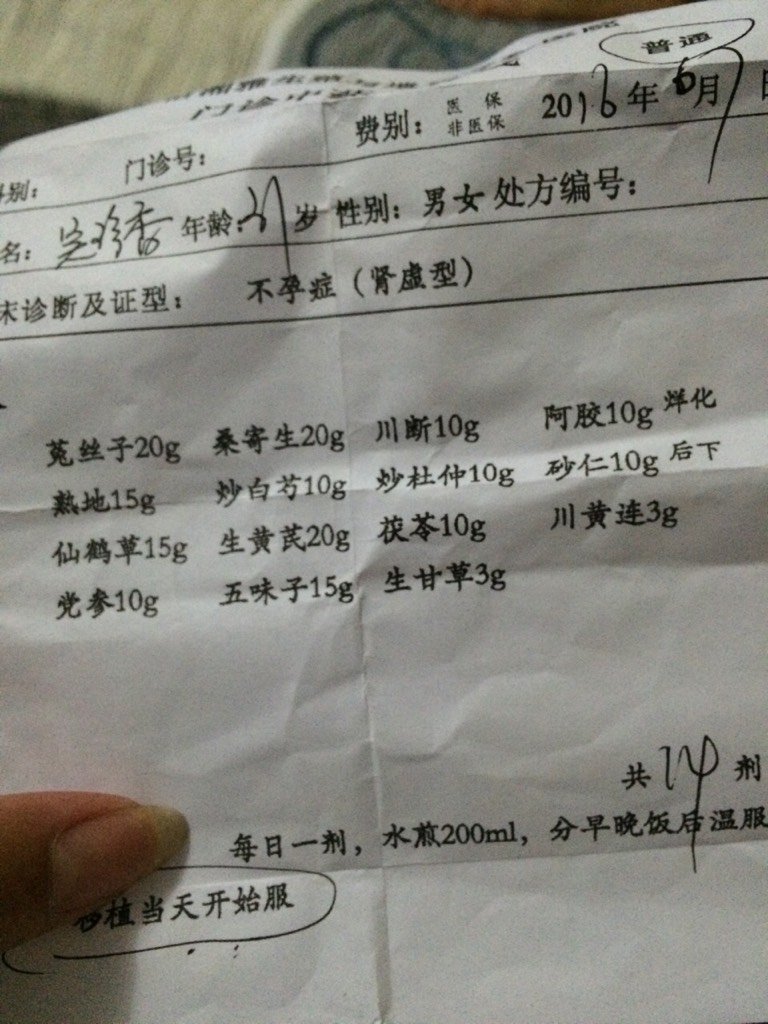 普通
门诊中
门诊号: 费别: 医保 非医保 2016年6月7日
名: 珍香 年龄: 31岁 性别: 男女 处方编号:
末诊断及证型: 不孕症（肾虚型）
菟丝子20g 桑寄生20g 川断10g 阿胶10g 烊化
熟地15g 炒白芍10g 炒杜仲10g 砂仁10g 后下
仙鹤草15g 生黄芪20g 茯苓10g 川黄连3g
党参10g 五味子15g 生甘草3g
共14剂
每日一剂，水煎200ml，分早晚饭后温服
移植当天开始服